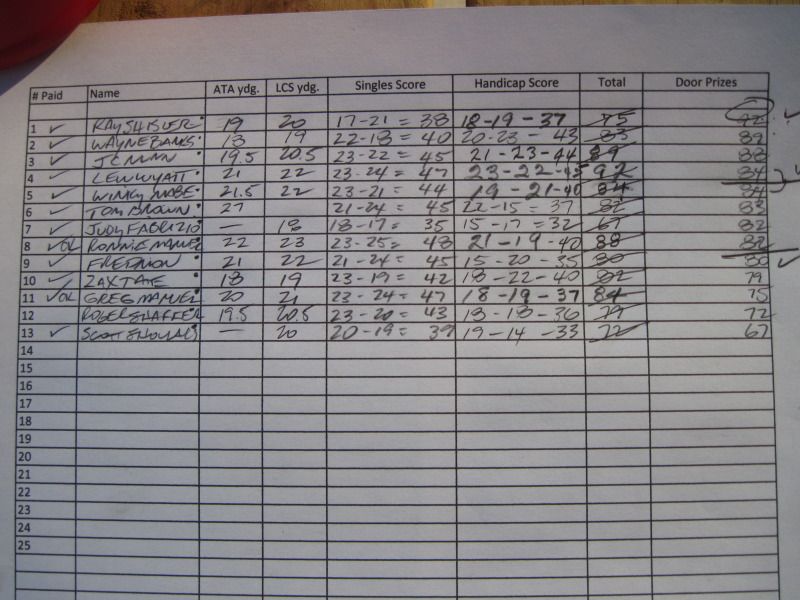 # Paid Name ATA ydg. LCS ydg. Singles Score Handicap Score Total Door Prizes
1 ✓ RAY SHISLER 19 20 17-21 = 38 18-19-37 75 92
2 ✓ WAYNE BANKS 18 19 22-18 = 40 20-23-43 83 89
3 ✓ 19.5 20.5 23-22 = 45 21-23-44 89 88
4 ✓ LEW WYATT 21 22 23-24 = 47 23-22-45 92 84
5 ✓ WINKY 21.5 22 23-21 = 44 19-21-40 84 84
6 ✓ TOM BROWN 21-24 = 45 22-15 = 37 82 83
7 ✓ JUDY FABRIZIO — 18 18-17 = 35 15-17 = 32 67 82
8 ✓ RONNIE 22 23 23-25 = 48 21-19-40 88 82
9 ✓ FRED 21 22 21-24 = 45 15-20-35 80 80
10 ✓ ZAX TATE 18 19 23-19 = 42 18-22-40 82 79
11 ✓ GREG 20 21 23-24 = 47 18-19-37 84 75
12 ROGER SHAFFER 19.5 20.5 23-20 = 43 18-18-36 79 72
13 ✓ SCOTT — 20 20-19 = 39 19-14-33 72 67
14
15
16
17
18
19
20
21
22
23
24
25